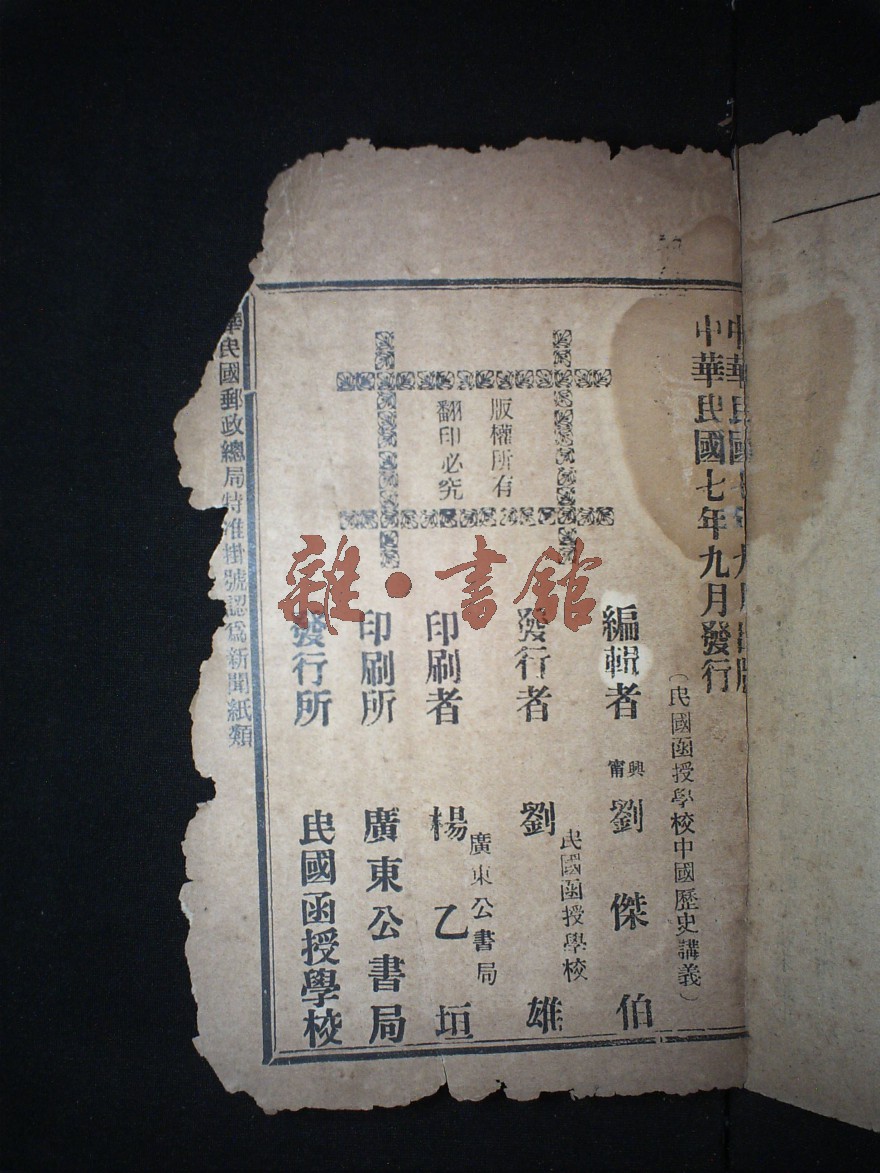 中華民國七年九月出版
中華民國七年九月發行
（民國函授學校中國歷史講義）
編輯者 興甯 劉傑伯
發行者 民國函授學校 劉雄
印刷者 廣東公書局 楊乙垣
印刷所 廣東公書局
發行所 民國函授學校
版權所有
翻印必究
華民國郵政總局特准掛號認爲新聞紙類
雜·書館